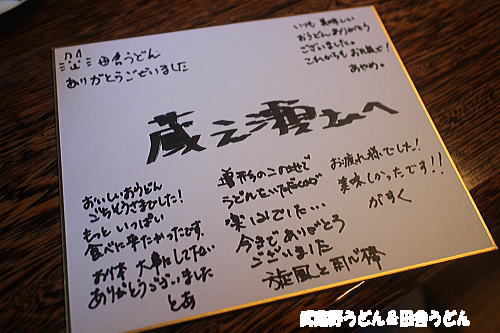 田舎うどん
ありがとうございました
いつも美味しい
おうどんありがとう
ございました。
これからもお元気で!
あやめ。
蔵之濱さんへ
おいしいおうどん
ごちそうさまでした!
もっといっぱい
食べに来たかったです
お体大事にしてください
ありがとうございました
とあ
増形のこの地で
うどんをいただくのが
楽しみでした…
今まで、ありがとう
ございました
旋風と雨心棒
お疲れ様でした!
美味しかったです!!
がすく
武蔵野うどん&田舎うどん